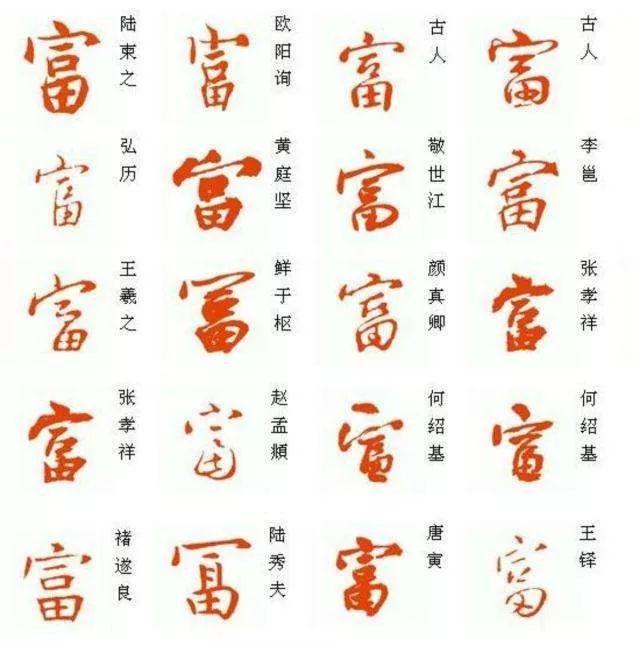 富 陆柬之
富 欧阳询
富 古人
富 古人
富 弘历
富 黄庭坚
富 敬世江
富 李邕
富 王羲之
冨 鲜于枢
富 颜真卿
富 张孝祥
富 张孝祥
富 赵孟頫
富 何绍基
富 何绍基
富 褚遂良
冨 陆秀夫
富 唐寅
富 王铎